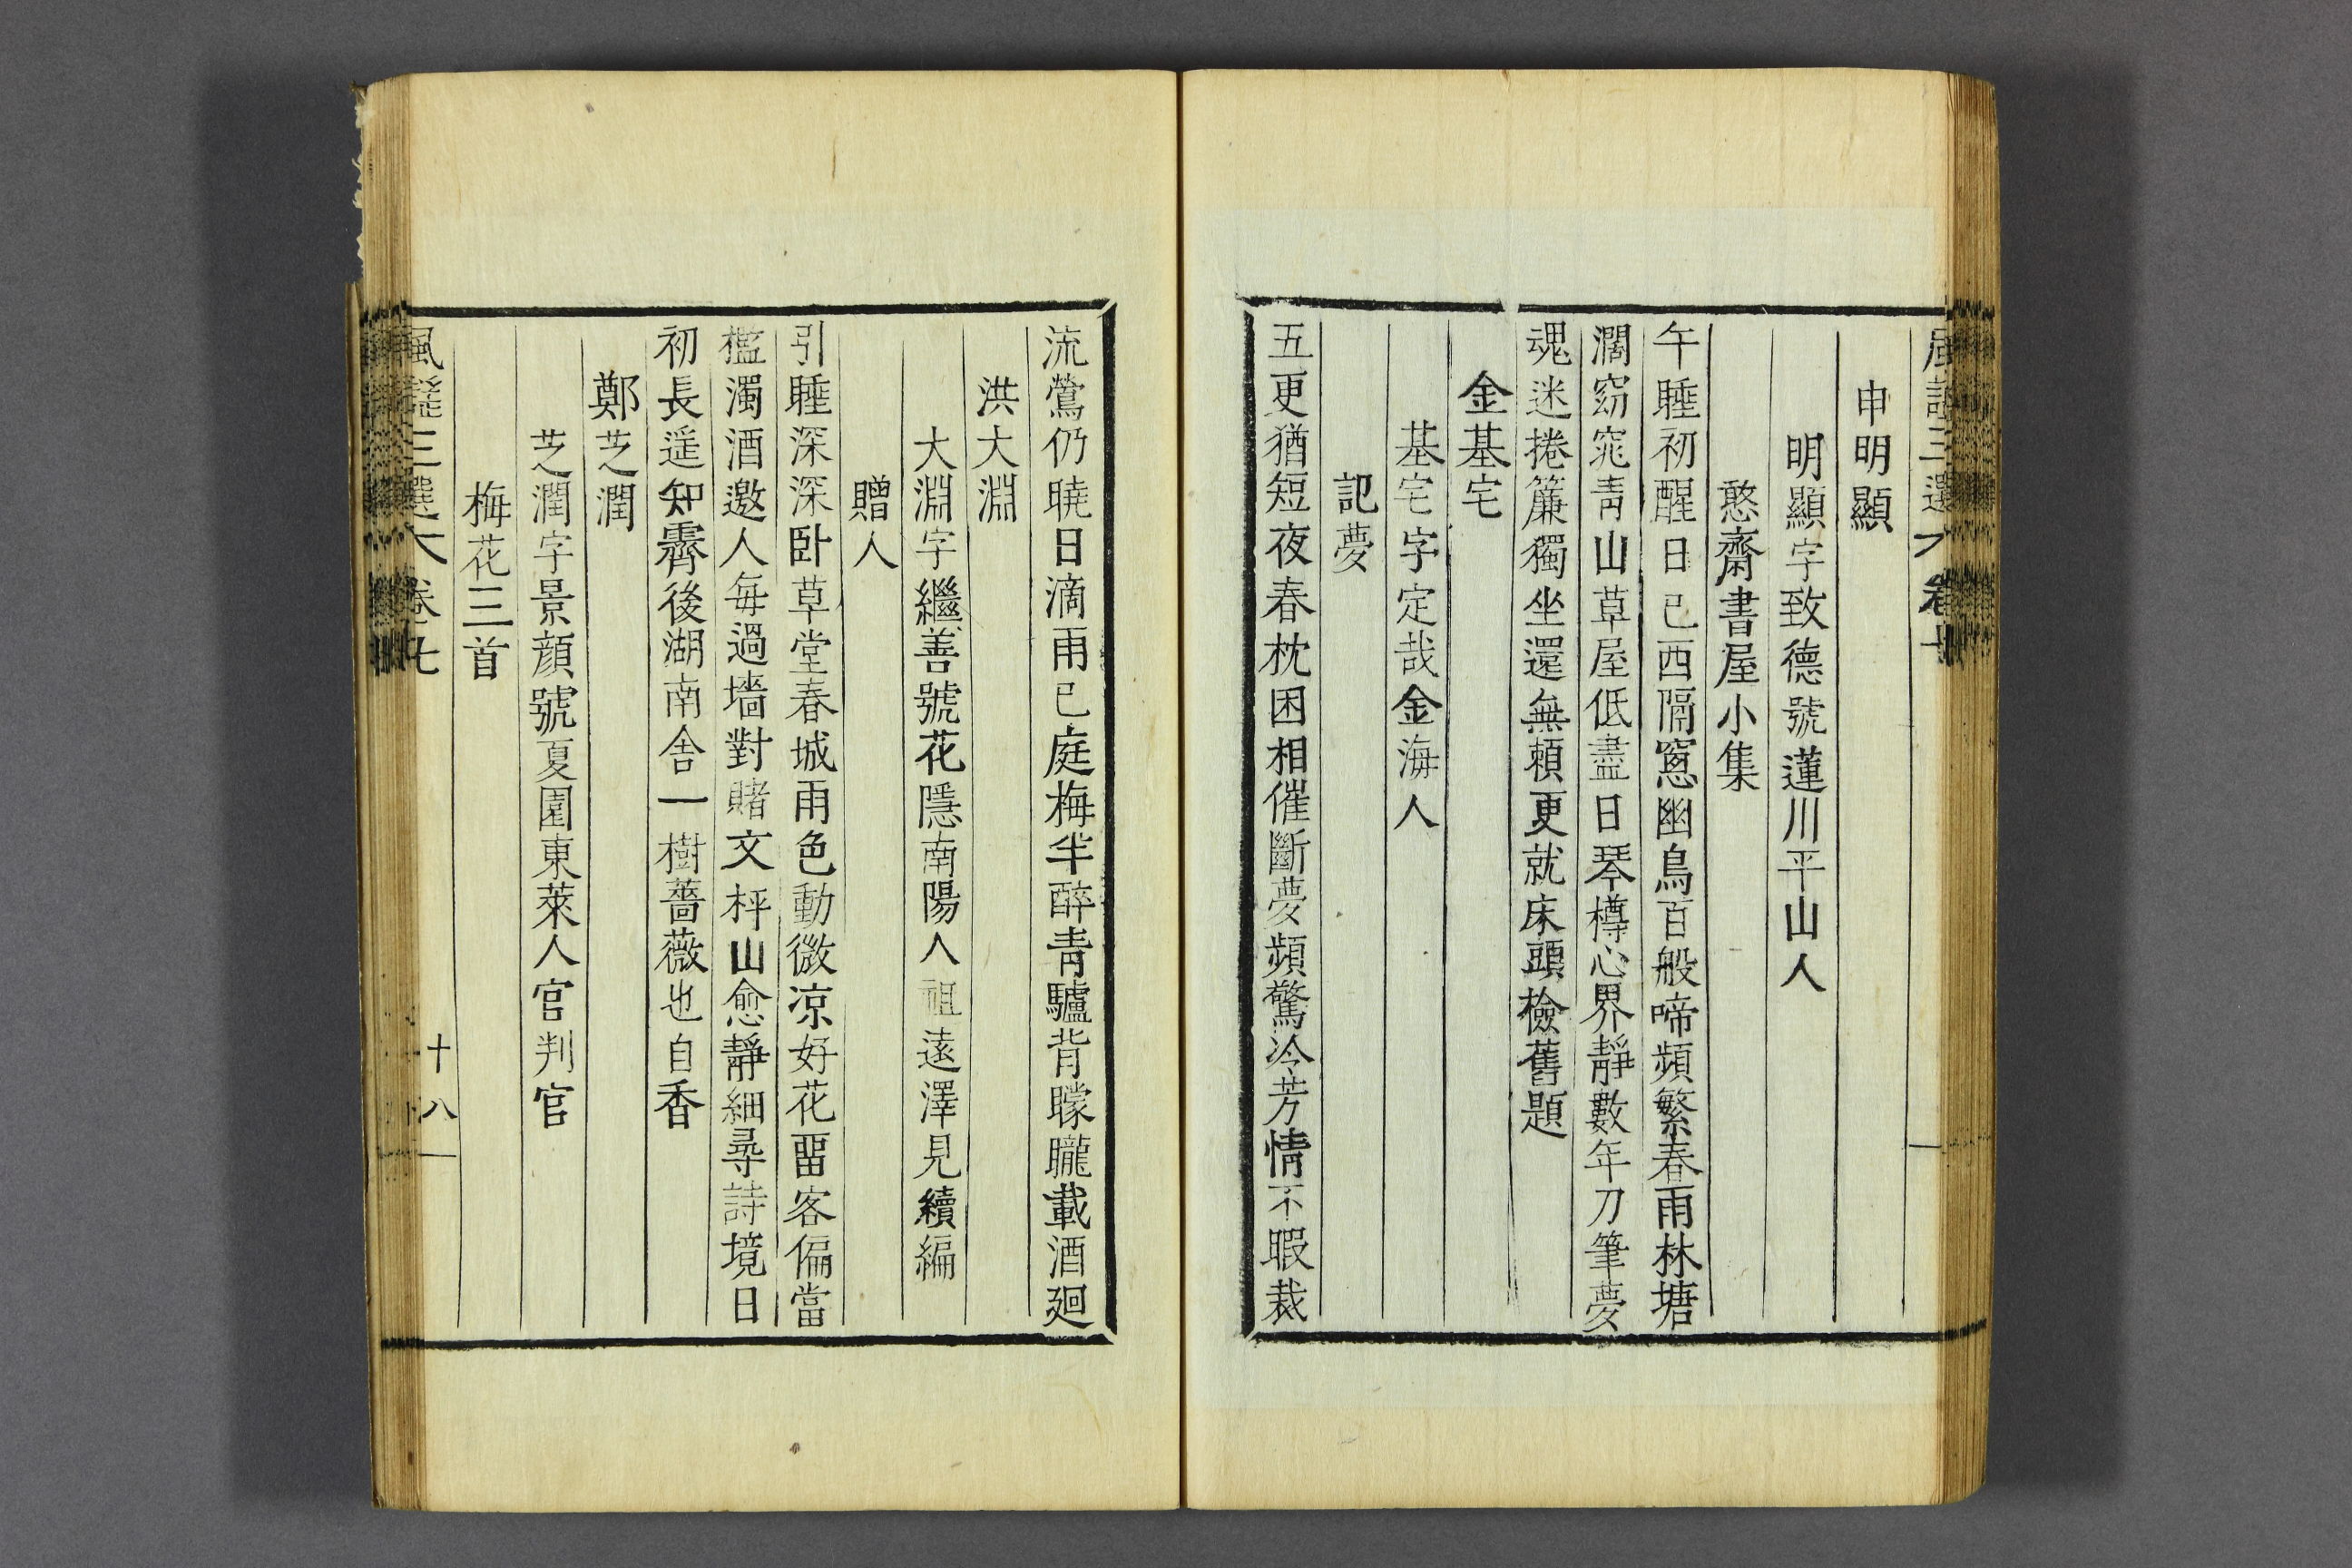 申明顯
明顯字致德號蓮川平山人
憨齋書屋小集
午睡初醒日已西隔窓幽鳥百般啼頻繁春雨林塘
濶窈窕靑山草屋低盡日琴樽心界靜數年刀筆夢
魂迷捲簾獨坐還無賴更就床頭檢舊題
金基宅
基宅字定哉金海人
記夢
五更猶短夜春枕困相催斷夢頻驚冷芳情不暇裁
流鶯仍曉日滴雨已庭梅半醉靑驢背曚曨載酒廻
洪大淵
大淵字繼善號花隱南陽人祖遠澤見續編
贈人
引睡深深卧草堂春城雨色動微凉好花畱客偏當
檻濁酒邀人每過墻對賭文枰山愈靜細尋詩境日
初長遥知霽後湖南舎一樹薔薇也自香
鄭芝潤
芝潤字景顔號夏園東萊人官判官
梅花三首
風謠三選 卷七 十八